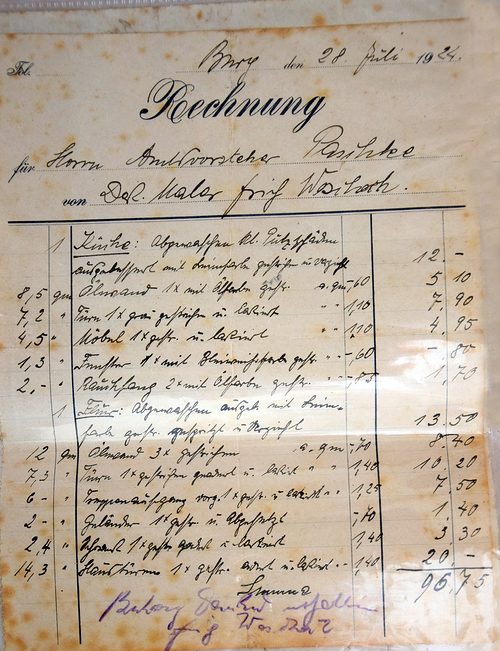 Fol.
Burg den 28. Juli 1924.
Rechnung
für Herrn Amtsvorsteher Paschke
von Dek. Maler
1 Küche: Abgewaschen kl. Putzschäden
ausgebessert mit Leimfarbe gestrichen u. 12.-
8,5 qm Ölwand 1x mit Ölfarbe gestr. a. qm -,60 5 10
7,2 " Türen 1x grau gestrichen u. lakiert " " 1,10 7 90
4,5 " Möbel 1x gestr. u. lakiert " " 1,10 4 95
1,3 " Fenster 1x mit Bleiweissfarbe gestr. " -,60 -.80
2,- " Rauchfang 2x mit Ölfarbe gestr. " -,85 1.70
1 Flur: Abgewaschen ausgeb. mit Leim-
farbe gestr. gespritzt u. 13.50
12 qm Ölwand 3x gestrichen a. qm -,70 8.40
7,3 " Türen 1x gestrichen u. lakiert " " 1,40 10.20
6 - " Treppenaufgang 1x gestr. u. lakiert " " 1,25 7.50
2 - " Geländer 1x gestr. u. Abgesetzt -,70 1.40
2,4 " 1x gestr. u. lakiert 1,40 3.30
14,3 " Haustüren 1x gestr. u. lakiert 1,40 20.-
Summa 96,75
Betrag dankend erhalten